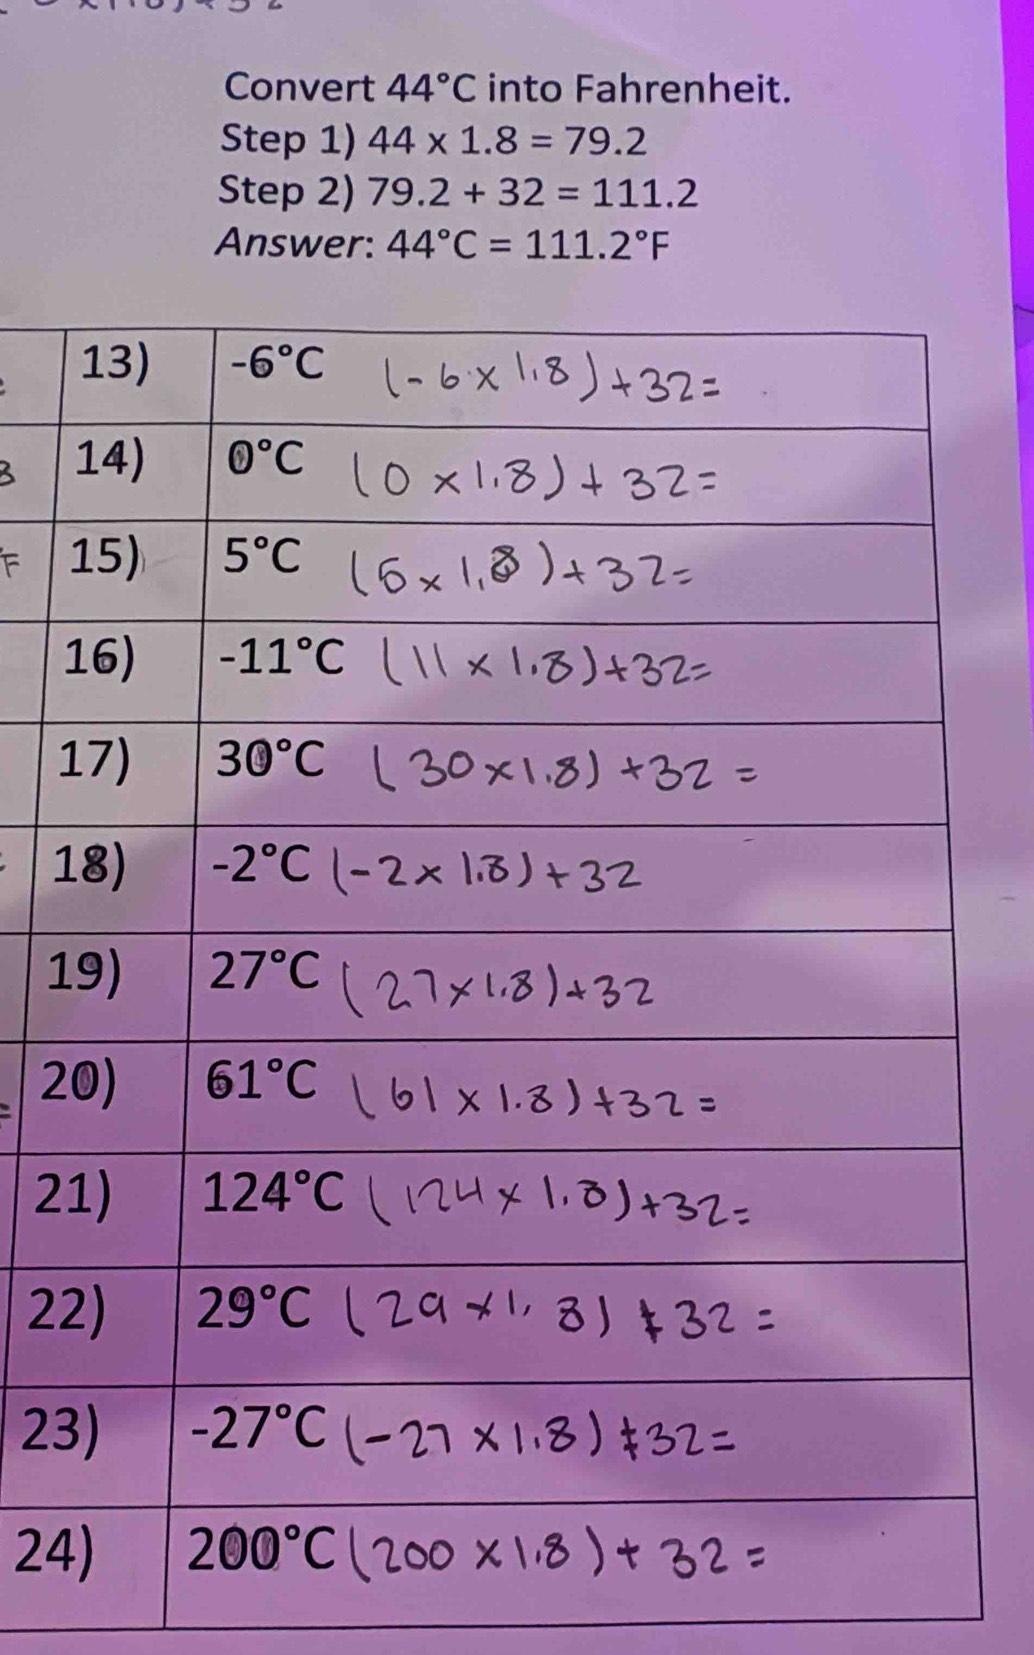 Convert 44°C into Fahrenheit.
Step 1) 44 x 1.8 = 79.2
Step 2) 79.2 + 32 = 111.2
Answer: 44°C = 111.2°F
13) -6°C (-6 x 1.8) + 32 =
14) 0°C (0 x 1.8) + 32 =
15) 5°C (5 x 1.8) + 32 =
16) -11°C (11 x 1.8) + 32 =
17) 30°C (30 x 1.8) + 32 =
18) -2°C (-2 x 1.8) + 32
19) 27°C (27 x 1.8) + 32
20) 61°C (61 x 1.8) + 32 =
21) 124°C (124 x 1.8) + 32 =
22) 29°C (29 x 1.8) + 32 =
23) -27°C (-27 x 1.8) + 32 =
24) 200°C (200 x 1.8) + 32 =